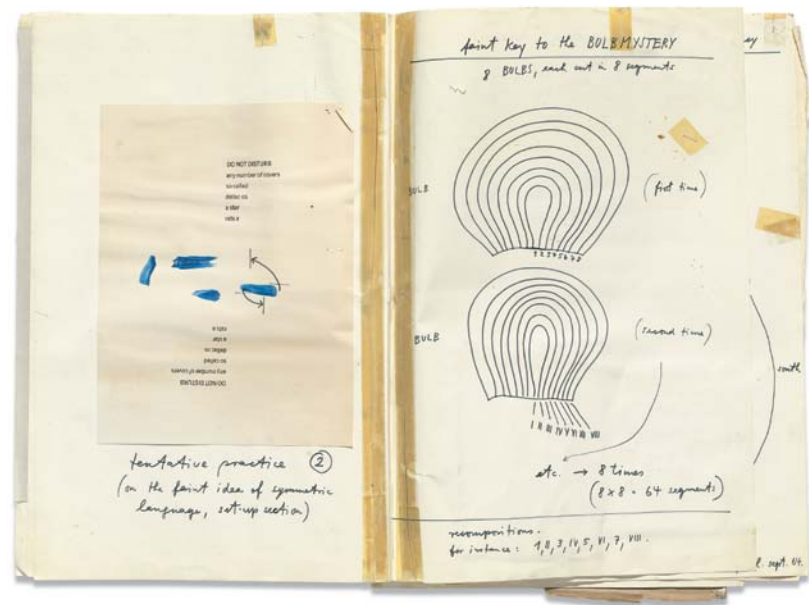 DO NOT DISTURB
any number of covers
so-called
delac so
a star
rats a
rats a
a star
delac so
so called
any number of covers
DO NOT DISTURB
tentative practice ②
(on the faint idea of symmetric
language, set-up section)
faint key to the BULBMYSTERY
8 BULBS, each cut in 8 segments
BULB
(first time)
1 2 3 4 5 6 7 8
BULB
(second time)
I II III IV V VI VII VIII
etc. → 8 times
(8 x 8 = 64 segments)
recompositions.
for instance: 1, II, 3, IV, 5, VI, 7, VIII.
ey
south
l. sept. 64.